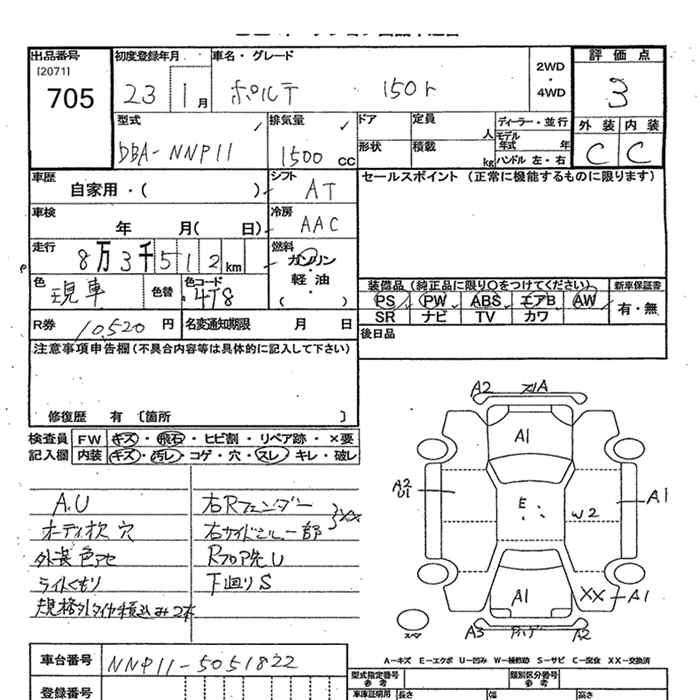 出品番号
[2071]
705
初度登録年月
23 1月
車名・グレード
ポルテ 150r
2WD
・
4WD
評価点
3
外装 内装
C C
型式
DBA-NNP11
排気量
1500 cc
ドア
定員
人
ディーラー・並行
モデル
年式 年
形状
積載
kg
ハンドル 左・右
車歴
自家用・( )
シフト
AT
セールスポイント(正常に機能するものに限ります)
車検
年 月( 日)
冷房
AAC
走行
8万3千512km
燃料
ガソリン
軽油
( )
色
現車
色替
色コード
4T8
装備品(純正品に限り〇をつけてください)
新車保証書
PS PW ABS エアB AW
有・無
SR ナビ TV カワ
R券 10520円
名変通知期限 月 日
後日品
注意事項申告欄(不具合内容等は具体的に記入して下さい)
修復歴 有 〔箇所 〕
検査員
記入欄
FW キズ・飛石・ヒビ割・リペア跡・×要
内装 キズ・汚レ・コゲ・穴・スレ・キレ・破レ
A.U
オーディオ枕 穴
外装 色アセ
ライトくもり
規格外タイヤ積込み2本
右Rフェンダー
右サイドシル一部
XX
RフロアU
下回りS
A2
A1
A1
A2
U1
E
W2
A1
A1
XX
A1
A3
A2
スペア
A-キズ E-エクボ U-凹み W-補修跡 S-サビ C-腐食 XX-交換済
車台番号
NNP11-5051822
登録番号
型式指定番号
参考
類別区分番号
参考
車庫証明用
長さ
幅
高さ